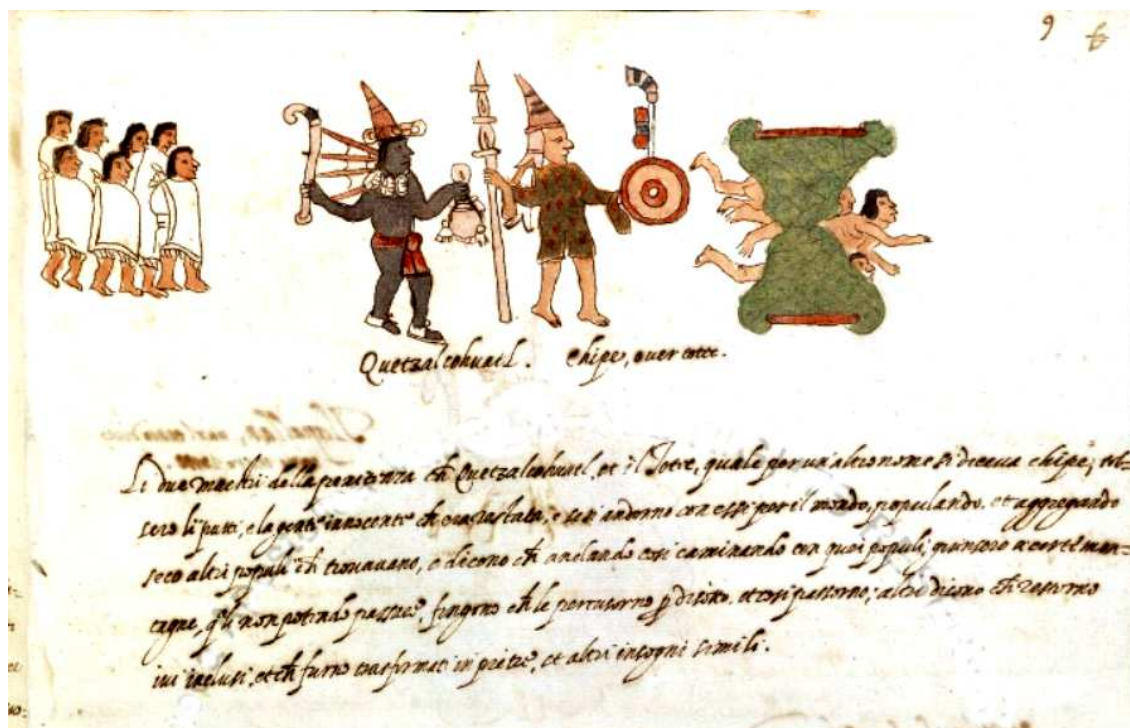 9
Quetzalcohuatl. Chipe, over totec.
Li dua maestri della penitenza ch Quetzalcohuatl, et il Totec, quale per un' altro nome si diceua chipe, tol=
sero li putti, e la gente innocente ch era restata, e se n' andorno con essi per il mondo, populando, et aggregando
seco altri populi ch trouauano, e dicono ch andando cosi caminando con quei populi, giunsero a certe mon=
tagne, q̃li non potendo passar, fingono ch le pertusorno di sotto, et cosi passorno; altri dicono ch restorno
iui inclusi, et ch furno trasformati in pietre, et altri insogni simili.